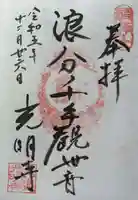 奉拝
浪分千手観世音
光明寺
令和五年
十二月廿六日